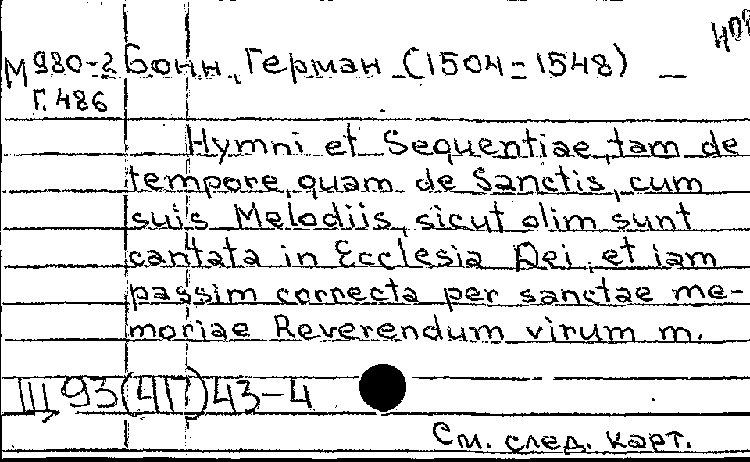 М 980-2 Бонн, Герман (1504-1548)
Г. 486
Hymni et Sequentiae, tam de
tempore, quam de Sanctis, cum
suis Melodiis, sicut olim sunt
cantata in Ecclesia Dei, et iam
passim correcta per sanctae me-
moriae Reverendum virum m.
III, 93(4Г)43-4
См. след. карт.